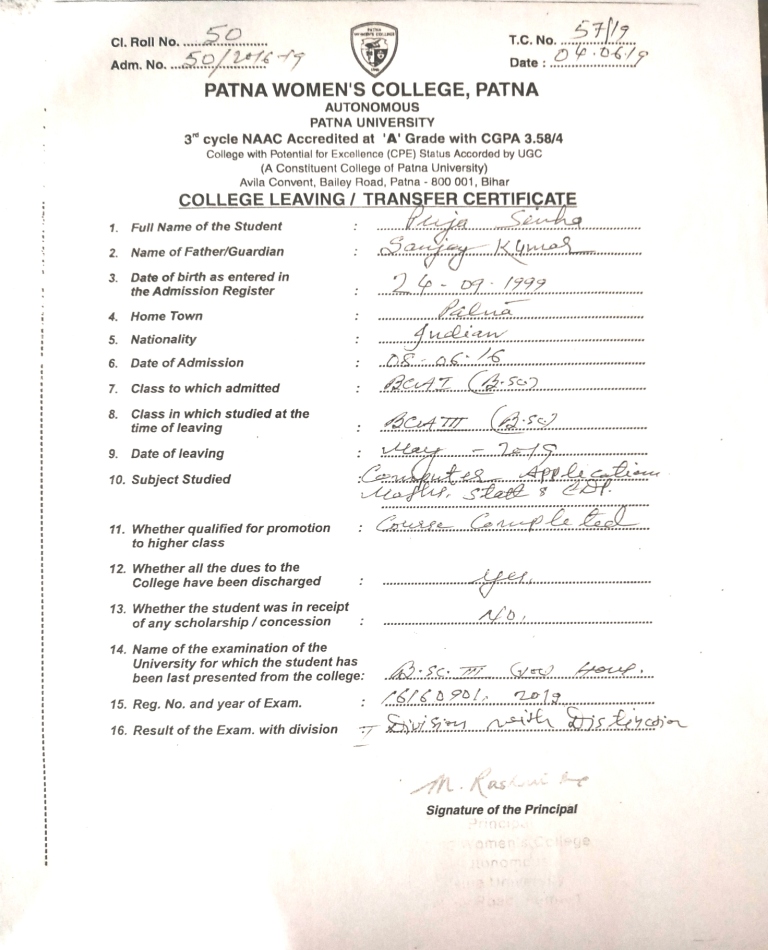 Cl. Roll No. 50 T.C. No. 57/19
Adm. No. 50/2016-19 Date : 04.06.19
PATNA WOMEN'S COLLEGE, PATNA
AUTONOMOUS
PATNA UNIVERSITY
3rd cycle NAAC Accredited at 'A' Grade with CGPA 3.58/4
College with Potential for Excellence (CPE) Status Accorded by UGC
(A Constituent College of Patna University)
Avila Convent, Bailey Road, Patna - 800 001, Bihar
COLLEGE LEAVING / TRANSFER CERTIFICATE
1. Full Name of the Student : Puja Sinha
2. Name of Father/Guardian : Sanjay Kumar
3. Date of birth as entered in
the Admission Register : 24-09-1999
4. Home Town : Patna
5. Nationality : Indian
6. Date of Admission : 08-06-16
7. Class to which admitted : BCA I (B.sc)
8. Class in which studied at the
time of leaving : BCA III (B.sc)
9. Date of leaving : May - 2019
10. Subject Studied : Computer Application
Maths, Stat &
11. Whether qualified for promotion
to higher class : Course Completed
12. Whether all the dues to the
College have been discharged : Yes
13. Whether the student was in receipt
of any scholarship / concession : No.
14. Name of the examination of the
University for which the student has
been last presented from the college: B.Sc. III Hons.
15. Reg. No. and year of Exam. : 2019
16. Result of the Exam. with division : I Division with Distinction
Signature of the Principal